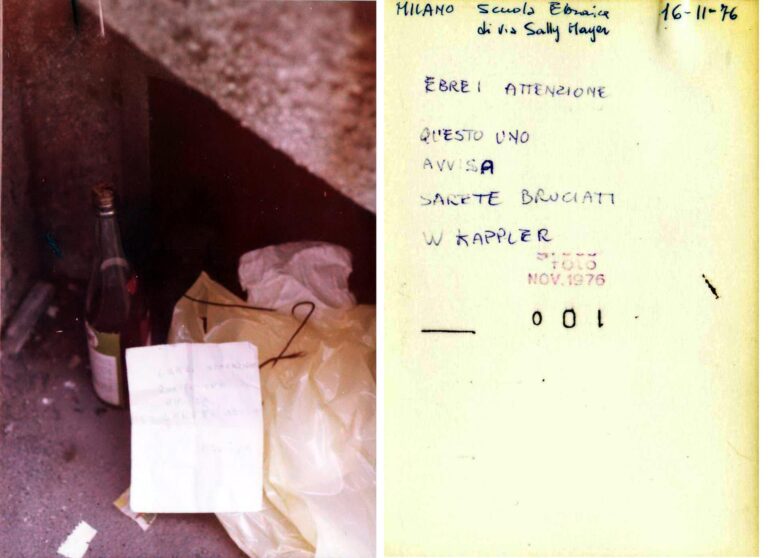 MILANO Scuola Ebraica 16-11-76
di via Sally Mayer
EBREI ATTENZIONE
QUESTO UNO
AVVISA
SARETE BRUCIATI
W KAPPLER
FOTO
NOV. 1976
001